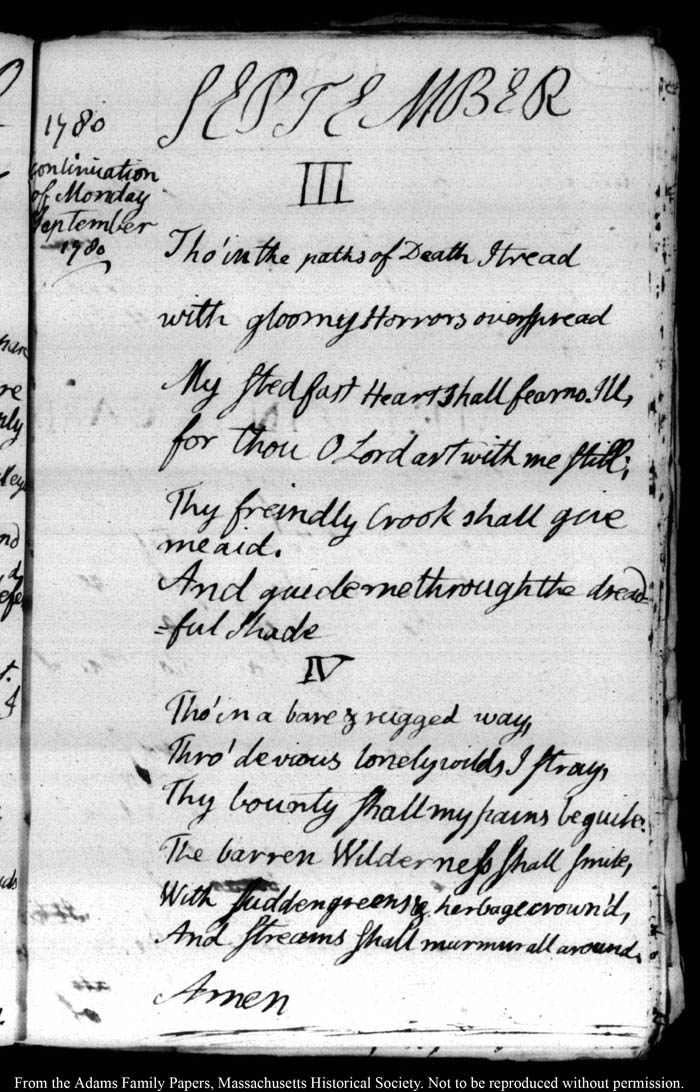 SEPTEMBER
1780
continuation
of Monday
September
1780
III
Tho' in the paths of Death I tread
with gloomy Horrors overspread
My stedfast Heart shall fear no Ill,
for thou O Lord art with me still;
Thy freindly Crook shall give
me aid.
And guide me through the dread=
=ful Shade
IV
Tho' in a bare & rugged way,
Thro' devious lonely wilds I stray,
Thy bounty shall my pains beguile.
The barren Wilderness shall smile,
With sudden greens & herbage crown'd,
And streams shall murmur all around.
Amen
From the Adams Family Papers, Massachusetts Historical Society. Not to be reproduced without permission.